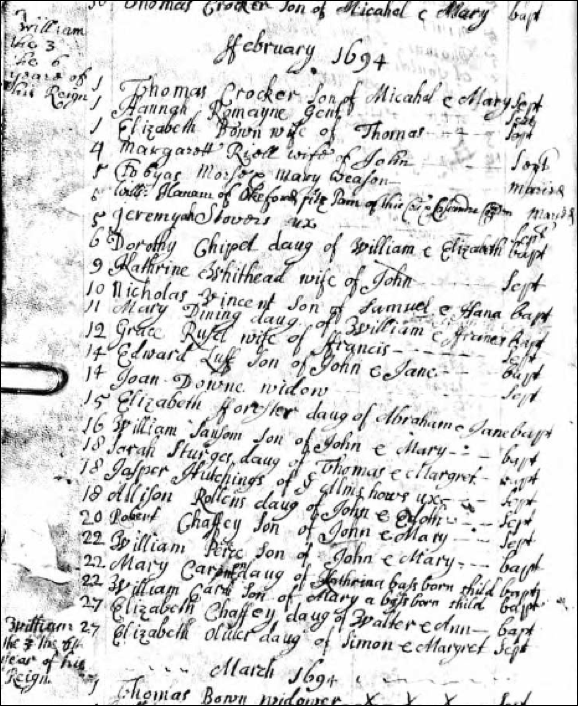 Thomas Crocker Son of Micahel & Mary bapt
William
the 3
the 6
yeare of
his Reign
ffebruary 1694
1 Thomas Crocker Son of Micahel & Mary Sept
1 Hannah Romayne Gent Sept
1 Elizabeth Bown wife of Thomas Sept
4 Margarett Rjell wife of John Sept
5 Tobyas Morse & Mary Beason maried
Will: Hanam of Okeford fitz Pain of this maried
5 Jeremyah Stovers ux Sept
6 Dorothy Chipet daug of William & Elizabeth bapt
9 Kathrine Whithead wife of John Sept
10 Nicholas Vincent Son of Samuel & Hana bapt
11 Mary Dining daug of William & bapt
12 Grace Rusel wife of Francis Sept
14 Edward Luff Son of John & Jane bapt
14 Joan Downe widow Sept
15 Elizabeth Forster daug of Abraham & Jane bapt
16 William Sansom Son of John & Mary bapt
18 Sarah Sturges daug of Thomas & Margret bapt
18 Jasper Hutchings of ye Almshows ux Sept
18 Allison Rollens daug of John & Sept
20 Robert Chaffey Son of John & Mary Sept
22 William Peire Son of John & Mary bapt
22 Mary daug of Kathrina bass born child bapt
22 William Card Son of Mary a bass born child bapt
27 Elizabeth Chaffey daug of Walter & Ann bapt
William
the 3 the 6
year of his
Reign
27 Elizabeth Oliver daug of Simon & Margret Sept
March 1694
1 Thomas Bown widower X X X Sept